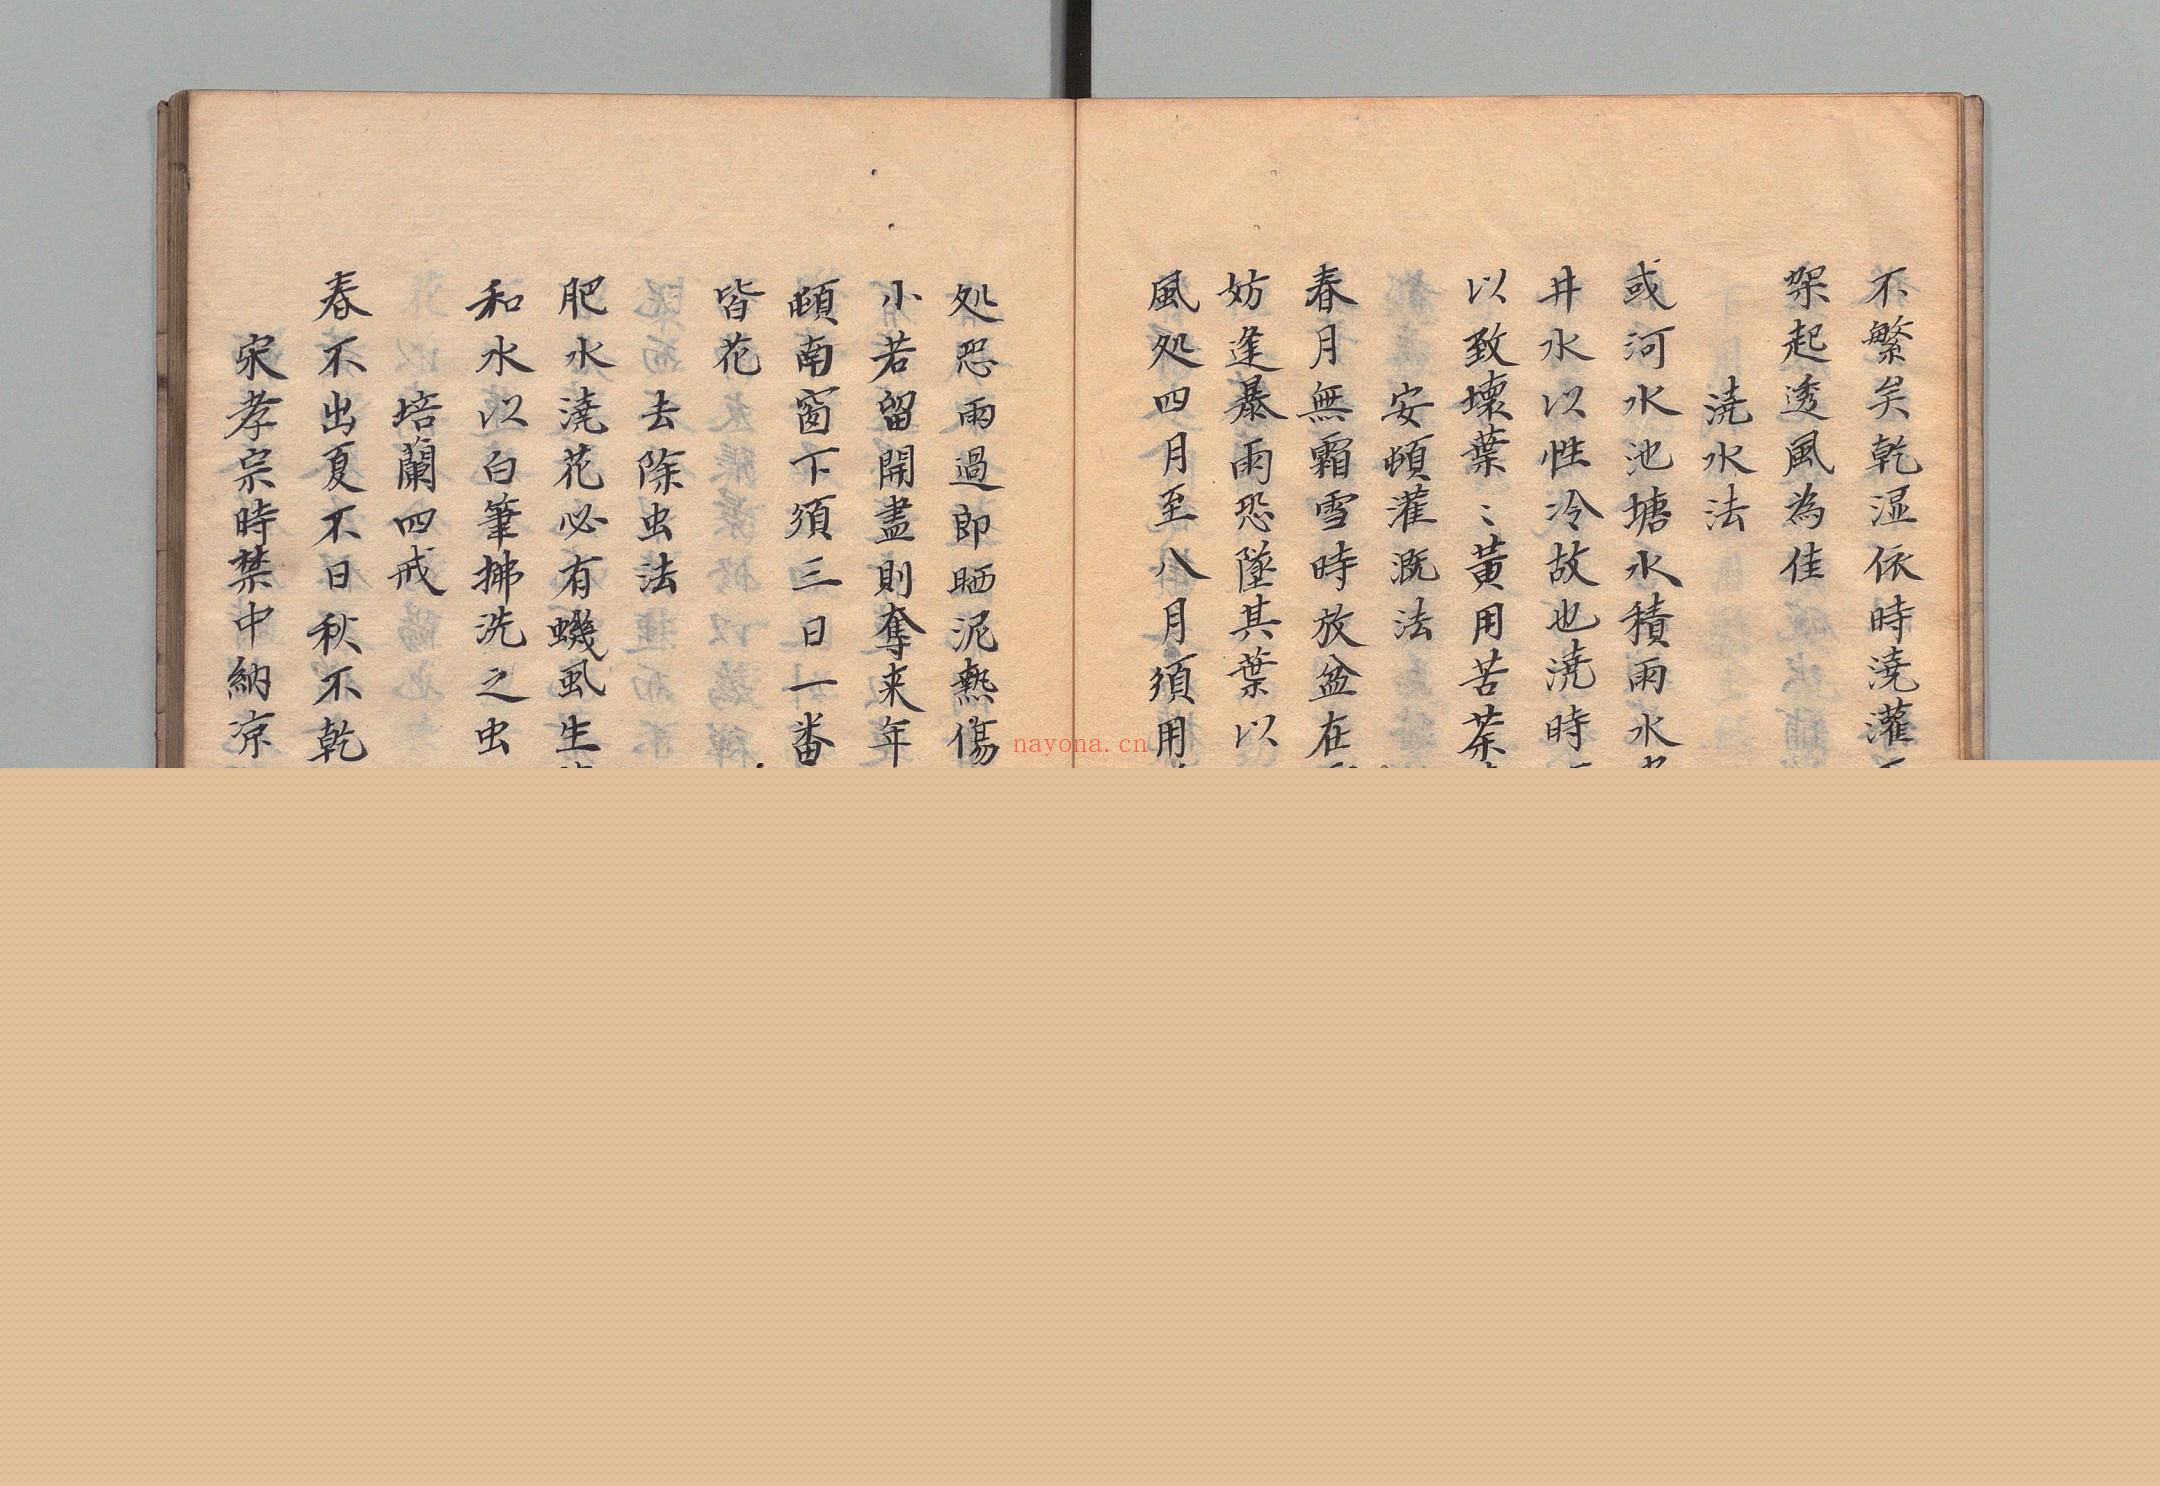 不繁矣乾湿依時澆灌
架起透風為佳
澆水法
或河水池塘水積雨水
井水以性冷故也澆時
以致壞葉〻黃用苦茶
安頓灌溉法
春月無霜雪時放盆在
妨逢暴雨恐墜其葉以
風处四月至八月須用
处恐雨過即晒泥熱傷
小若留開盡則奪来年
頤南窗下須三日一番
皆花
去除虫法
肥水澆花必有蟣虱生
和水以白筆拂洗之虫
培蘭四戒
春不出夏不日秋不乾
宋孝宗時禁中納凉
nayona.cn